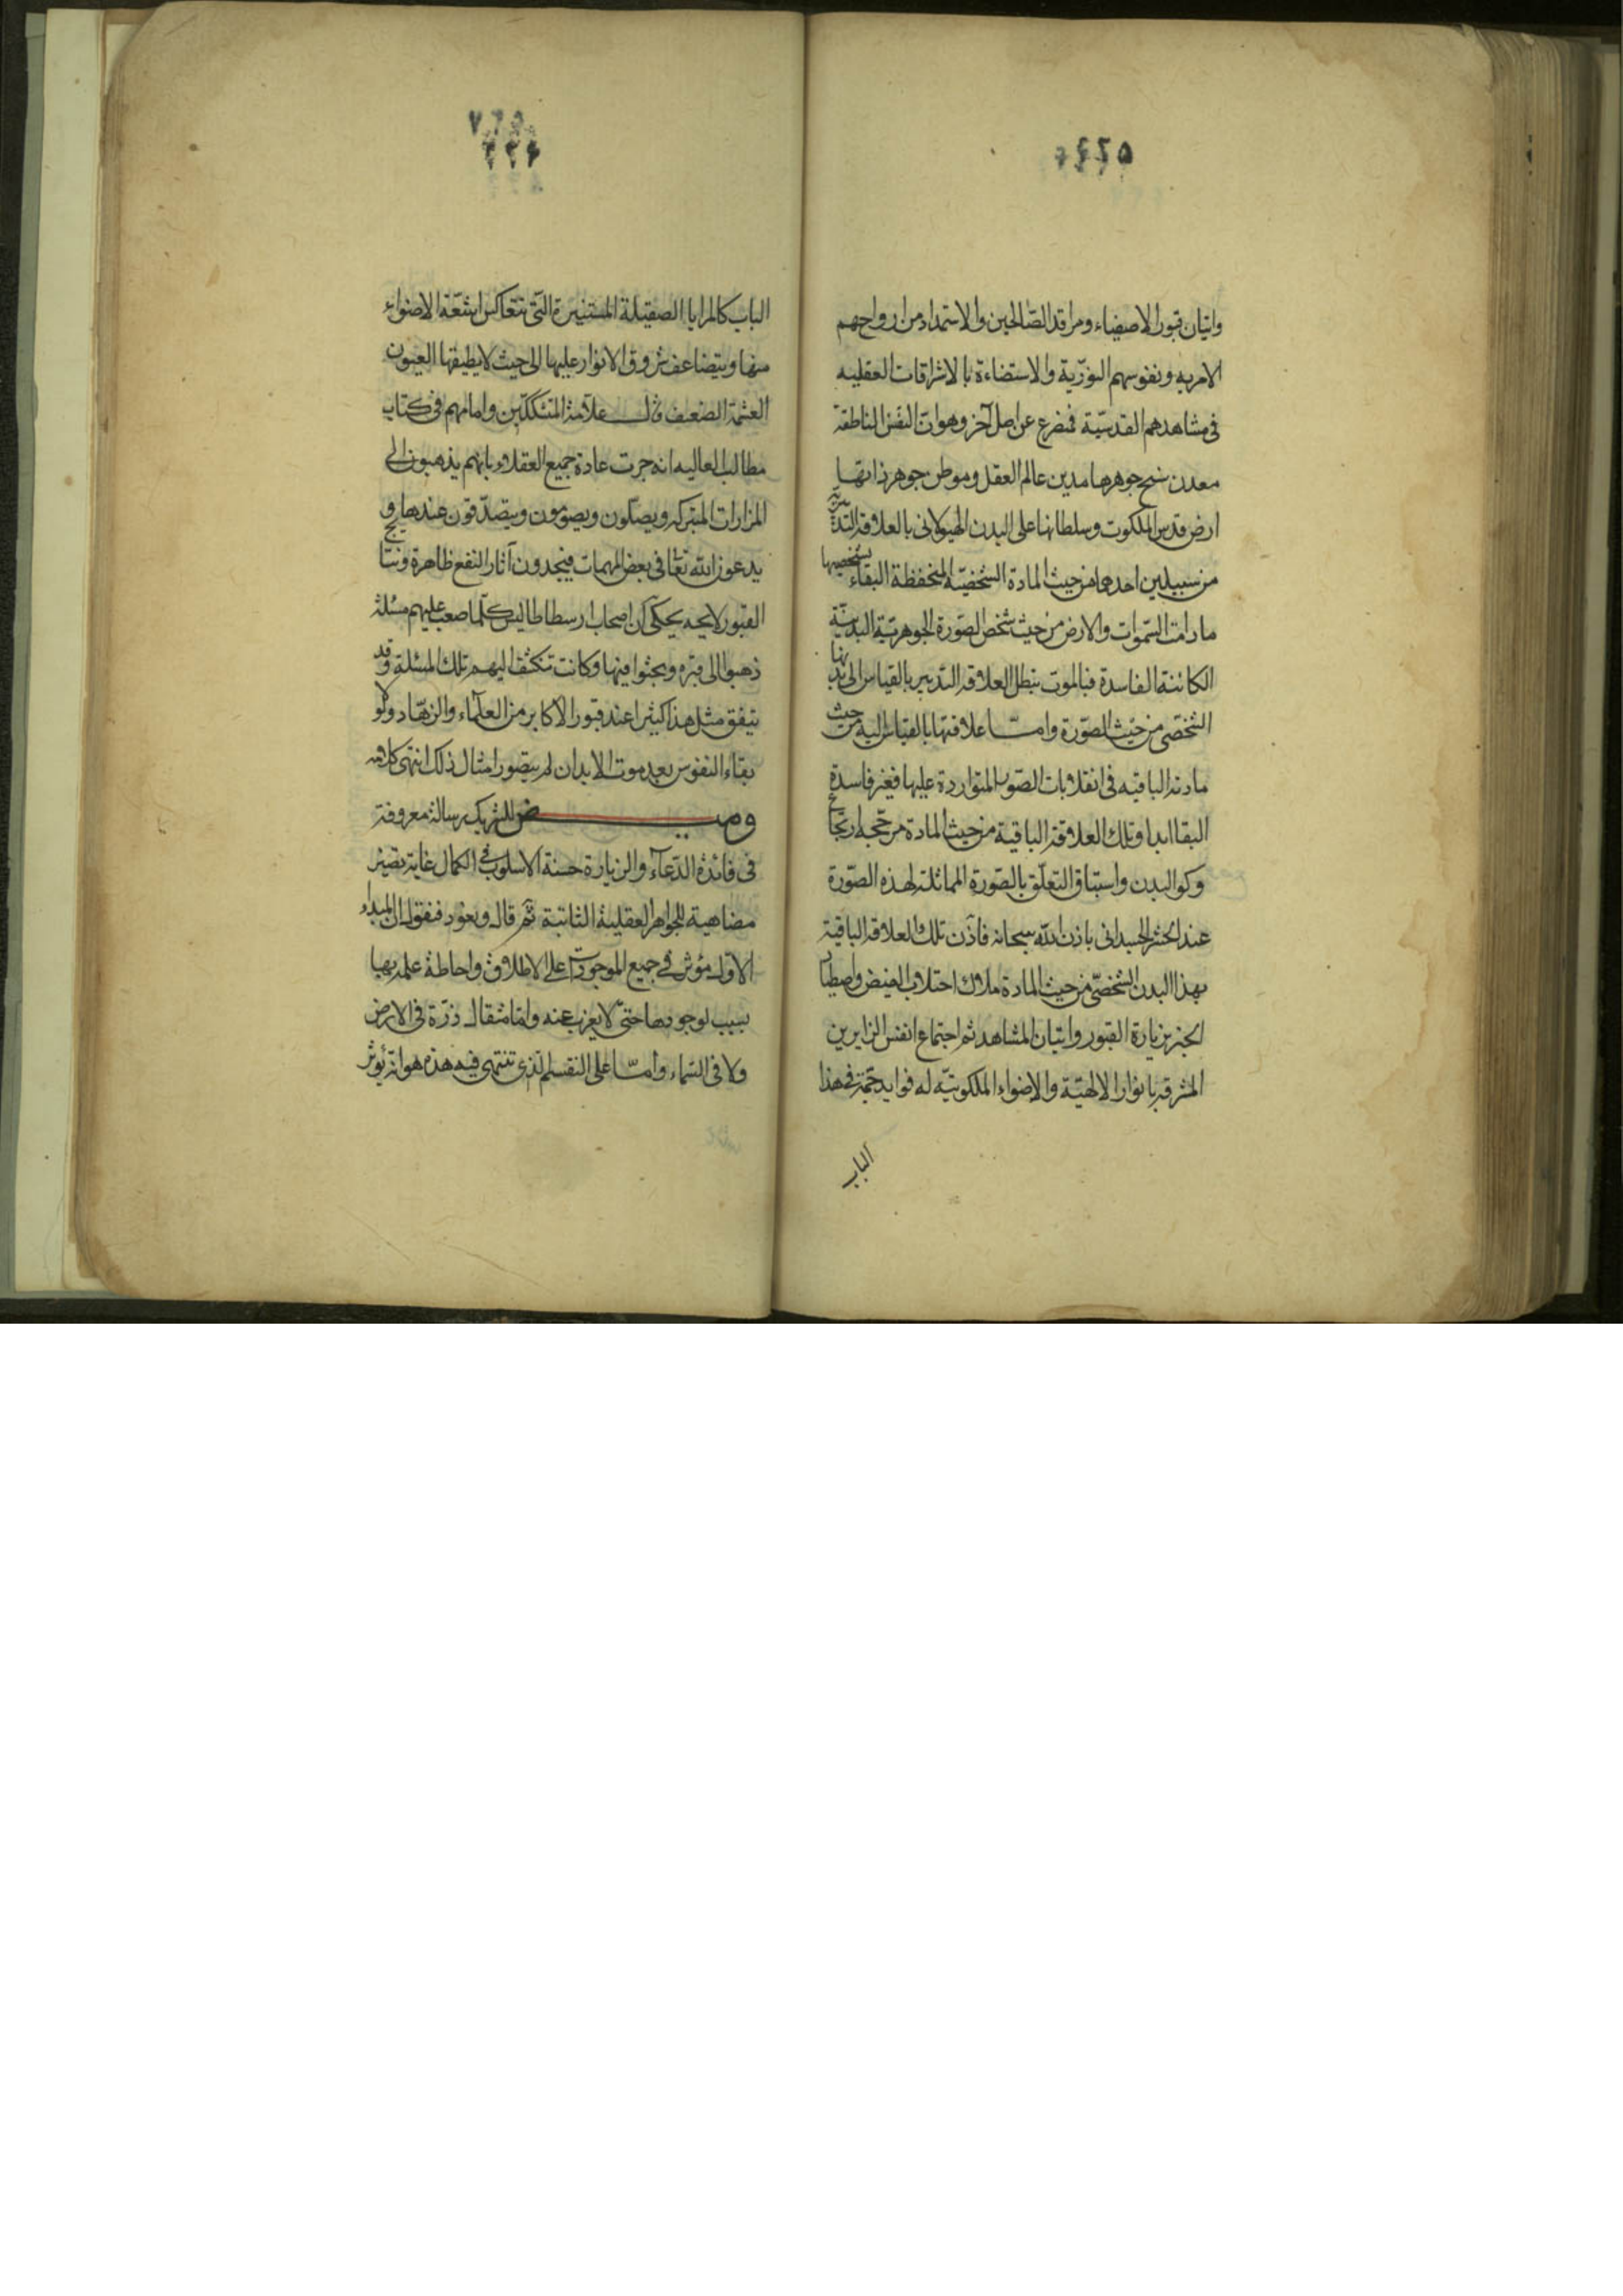 واتيان قبور الاصفياء ومراقد الصّالحين والاستمداد من ارواحهم
الامريه ونفوسهم النوريّة والاستضاءة بالاشراقات العقليه
في مشاهدهم القدسيّة فمنفرع عن اصل آخر وهو ان النفس الناطقة
معدن سنخ جوهرها مدين عالم العقل وموطن جوهر ذاتها
ارض قدس الملكوت وسلطانها على البدن الهيولاني بالعلاقة التدبيريّة
من سبيلين احدهما من حيث المادة الشخصيّة المنحفظة البقاء بشخصيها
ما دامت السّموات والارض من حيث شخص الصّورة الجوهريّة البدنيّة
الكائنة الفاسدة فبالموت تبطل العلاقة التدبير بالقياس الى بدنها
الشخصي من حيث الصّورة وامّا علاقتها بالقياس اليه من حيث
مادته الباقيه في انقلابات الصّور المتواردة عليها فغير فاسدة
البقا ابدا وتلك العلاقة الباقية من حيث المادة مرجّحه ارتجاع
وكو البدن واستيناف التعلّق بالصّورة المماثلة لهذه الصّورة
عند الحشر الجسداني باذن اللّه سبحانه فاذن تلك العلاقة الباقية
بهذا البدن الشخصّي من حيث المادة ملاك اجتلاب الفيض واصطياد
الخير بزيارة القبور واتيان المشاهد ثم اجتماع انفس الزايرين
المشرقة بانوار الالهيّة والاضواء الملكوتيّه له فوايد جمّة في هذا
الباب
الباب كالمرايا الصقيلة المستنيرة الّتي تتعاكس اشعّة الاضواء
منها ويتضاعف شروق الانوار عليها الى حيث لا يطيقها العيون
العشمة الضعيف قال علامة المتشككين وامامهم في كتاب
مطالب العاليه انه جرت عادة جميع العقلاء بانهم يذهبون الى
المزارات المتبركه ويصلّون ويصومون ويتصدّقون عندها و
يدعون اللّه تعالى في بعض المهمات فيجدون آثار النفع ظاهرة ونتائج
القبور لايحه يحكى ان اصحاب ارسطاطاليس كلّما صعب عليهم مسئلة
ذهبوا الى قبره وبحثوا فيها وكانت تكشف اليهم تلك المسئلة وقد
يتفق مثل هذا كثيرا عند قبور الاكابر من العلماء والزهّاد ولولا
بقاء النفوس بعد موت الابدان لم يتصور امثال ذلك انتهى كلامه
وميض للشريك رسالة معروفة
في فائدة الدّعاء والزيارة حسنة الاسلوب في الكمال غاية تصير
مضاهية للجواهر العقلية الثابتة ثم قال ويعود فنقول ان المبداء
الاول مؤثر في جميع الموجودات على الاطلاق واحاطة علمه بها
سبب لوجودها حتى لا يعزب عنه مثقال ذرّة في الارض
ولا في السّماء وامّا على التقسيم الّذي تنتهي فيه هذه هو انه يؤثر